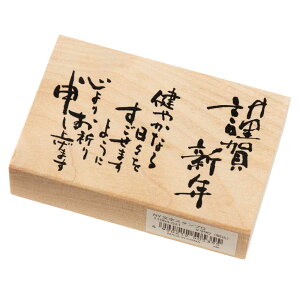 謹賀
新年
健やかなる
日々を
すごせます
ように
心よりお祈り
申し上げます